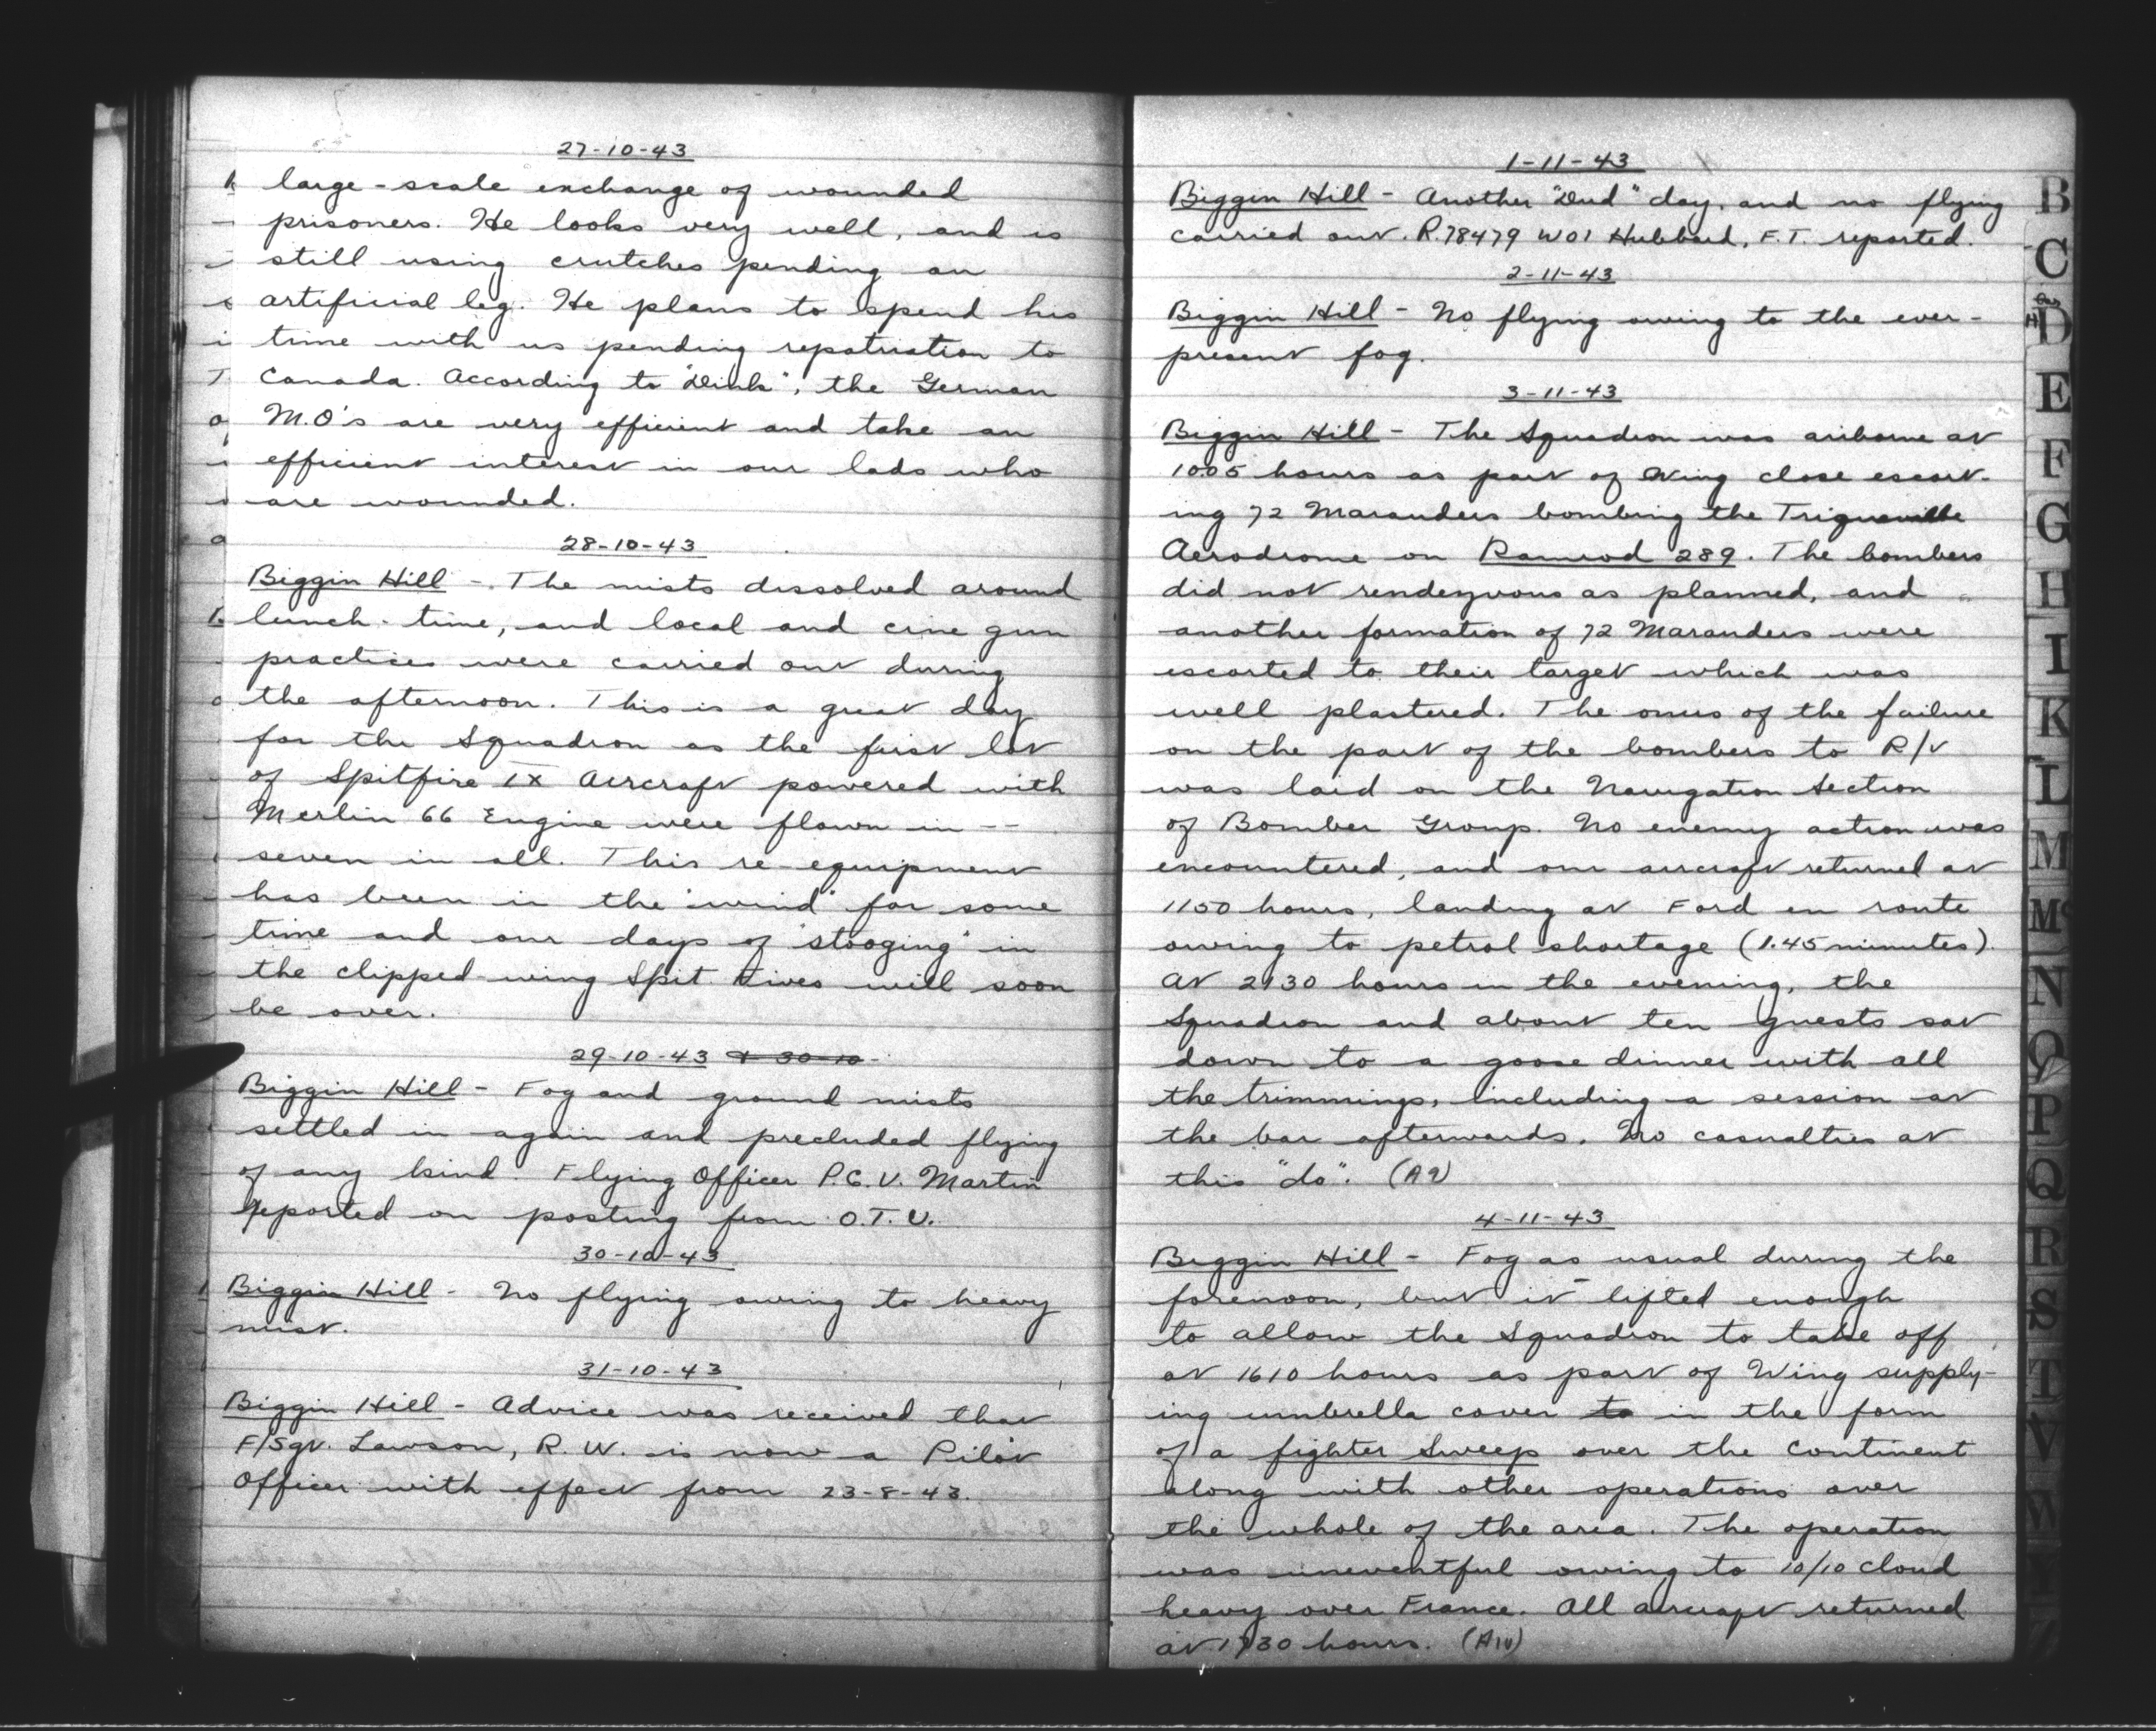 27-10-43
large-scale exchange of wounded
prisoners. He looks very well, and is
still using crutches pending an
artificial leg. He plans to spend his
time with us pending repatriation to
Canada. According to "Dink", the German
M.O's are very efficient and take an
efficient interest in our lads who
are wounded.
28-10-43
Biggin Hill - The mists dissolved around
lunch-time, and local and cine gun
practices were carried out during
the afternoon. This is a great day
for the Squadron as the first lot
of Spitfire IX Aircraft powered with
Merlin 66 Engine were flown in --
seven in all. This re-equipment
has been in the "wind" for some
time and our days of "stooging" in
the clipped-wing Spit. Fives will soon
be over.
29-10-43 & 30-10-
Biggin Hill - Fog and ground mists
settled in again and precluded flying
of any kind. Flying Officer P.G.V. Martin
reported on posting from O.T.U.
30-10-43
Biggin Hill - No flying owing to heavy
mist.
31-10-43
Biggin Hill - Advice was received that
F/Sgt. Lawson, R.W. is now a Pilot
Officer with effect from 23-8-43.
1-11-43
Biggin Hill - Another "Dud" day, and no flying
carried out. R.78479 WO1 Hubbard, F.T. reported.
2-11-43
Biggin Hill - No flying owing to the ever-
present fog.
3-11-43
Biggin Hill - The Squadron was airborne at
1005 hours as part of Wing close escort-
ing 72 Marauders bombing the Triqueville
Aerodrome on Ramrod 289. The bombers
did not rendezvous as planned, and
another formation of 72 Marauders were
escorted to their target which was
well plastered. The onus of the failure
on the part of the bombers to R/V
was laid on the Navigation Section
of Bomber Group. No enemy action was
encountered, and our aircraft returned at
1150 hours, landing at Ford en route
owing to petrol shortage (1.45 minutes).
At 1930 hours in the evening, the
Squadron and about ten guests sat
down to a goose dinner with all
the trimmings, including a session at
the bar afterwards. No casualties at
this "do". (A9)
4-11-43
Biggin Hill - Fog as usual during the
forenoon, but it lifted enough
to allow the Squadron to take off
at 1610 hours as part of Wing supply-
ing umbrella cover to in the form
of a fighter Sweep over the Continent
along with other operations over
the whole of the area. The operation
was uneventful owing to 10/10 cloud
heavy over France. All aircraft returned
at 1730 hours. (A10)
B
C
D
E
F
G
H
I
K
L
M
Mc
N
O
P
Q
R
S
T
V
W
Y